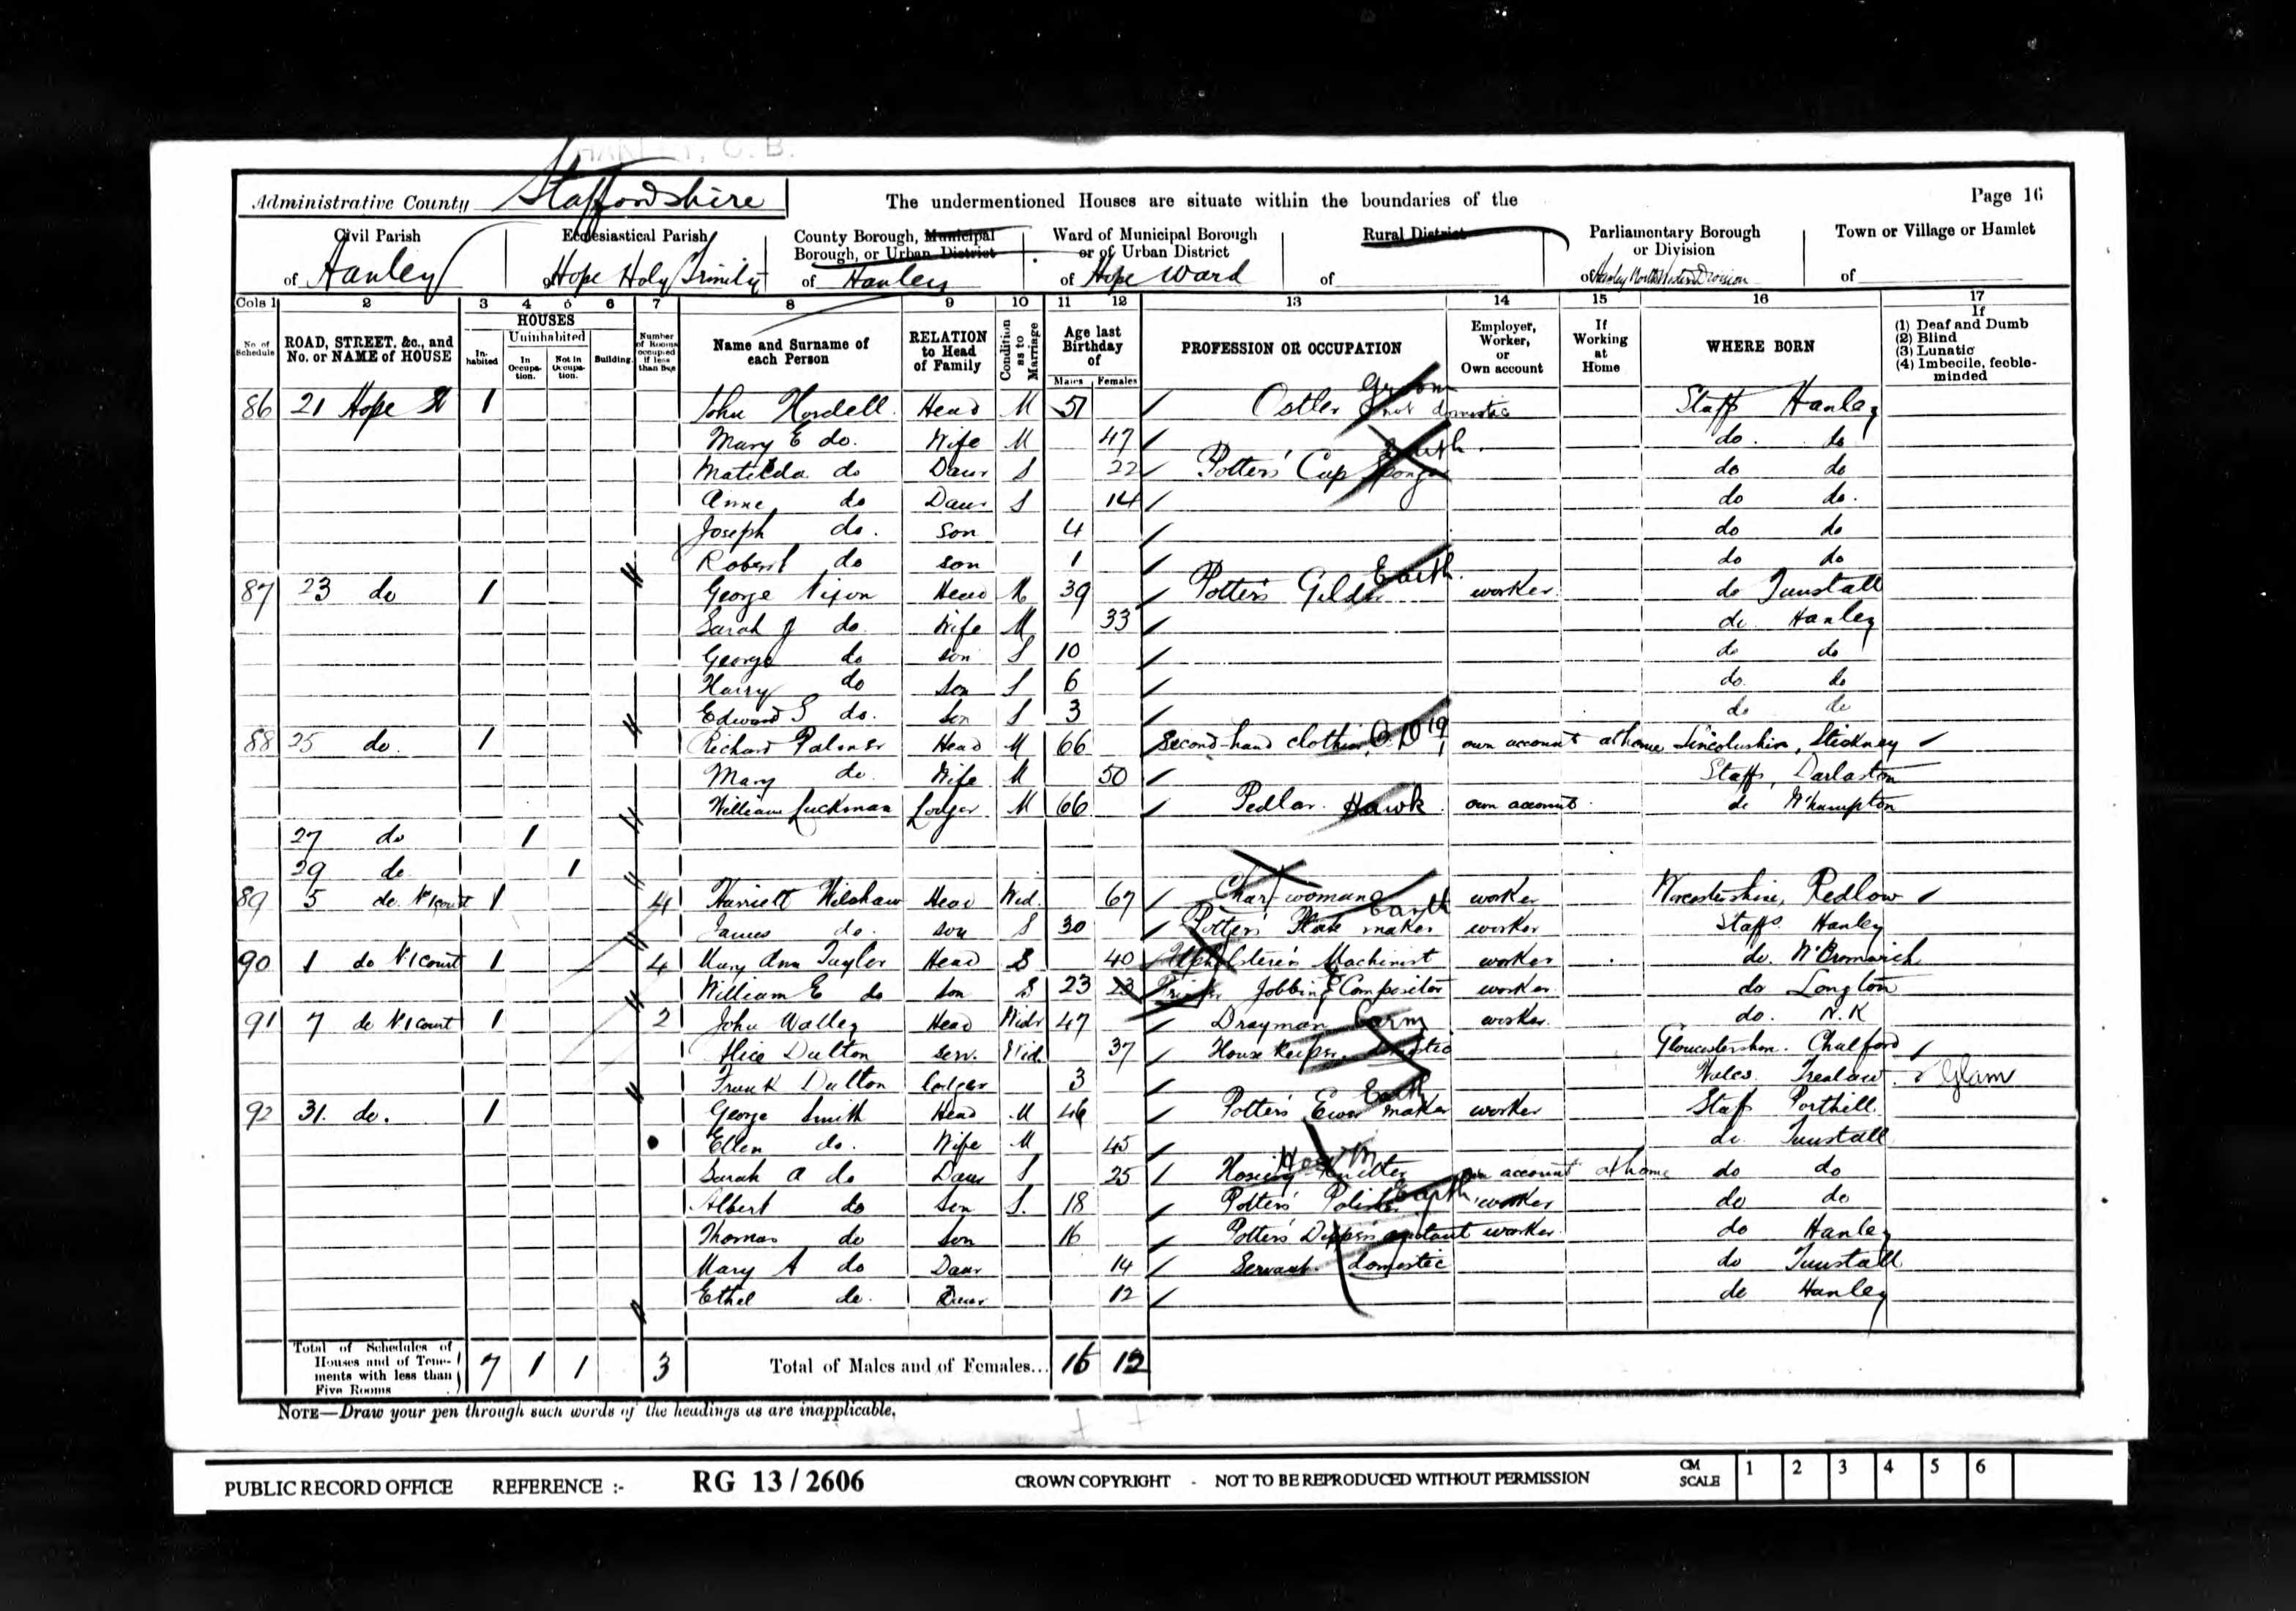 HANLEY, C. B.
Administrative County Staffordshire The undermentioned Houses are situate within the boundaries of the Page 16
Civil Parish of Hanley
Ecclesiastical Parish of Hope Holy Trinity
County Borough, Municipal Borough, or Urban District of Hanley
Ward of Municipal Borough or of Urban District of Hope Ward
Rural District of
Parliamentary Borough or Division of Hanley Division
Town or Village or Hamlet of
Cols 1 2 3 4 5 6 7 8 9 10 11 12 13 14 15 16 17
No. of Schedule
ROAD, STREET, &c., and No. or NAME of HOUSE
HOUSES
Inhabited
Uninhabited
In Occupation.
Not in Occupation.
Building.
Number of Rooms occupied if less than five
Name and Surname of each Person
RELATION to Head of Family
Condition as to Marriage
Age last Birthday of
Males Females
PROFESSION OR OCCUPATION
Employer, Worker, or Own account
If Working at Home
WHERE BORN
If
(1) Deaf and Dumb
(2) Blind
(3) Lunatic
(4) Imbecile, feeble-minded
86 21 Hope St 1 John Head M 51 Ostler Groom not domestic Staff Hanley
Mary E do. Wife M 47 do. do
Matilda do Daur S 22 Potters' Cup Sponger Earth. do do
Anne do Daur S 14 do do.
Joseph do. son 4 do do
Robert do son 1 do do
87 23 do 1 George Nixon Head M 39 Potters Gilder Earth. worker do Tunstall
Sarah J do. Wife M 33 do. Hanley
George do son S 10 do do
Harry do son S 6 do. do
Edward S do. son S 3 do do
88 25 do. 1 Richard Palmer Head M 66 Second-hand clothier own account at home Lincolnshire, Stickney
Mary do Wife M 50 Staffs, Darlaston
William Luckman Lodger M 66 Pedlar. Hawk own account. do W'hampton
27 do 1
29 do 1
89 5 do. No 1 court 1 4 Harriett Wilshaw Head Wid. 67 Char woman worker Worcestershire, Redlow
James do. son S 30 Potters' Plate maker Earth worker Staffs Hanley
90 1 do No 1 Court 1 4 Mary Ann Taylor Head S 40 Upholsterer's Machinist worker do. W. Bromwich
William E do son S 23 23 Printer Jobbing Compositor worker do Longton
91 7 do No 1 court 1 2 John Walley Head Widr 47 Drayman worker. do. N.K
Alice Dulton serv. Wid. 37 House Keeper domestic Gloucestershire. Chalford
Frank Dulton lodger 3 Wales. Trealaw. Glam
92 31. do. 1 George Smith Head M 46 Potters' Ewer maker Earth worker Staf Porthill.
Ellen do. Wife M 45 do. Tunstall
Sarah A do Daur S 25 Hosiery Knitter own account at home do do
Albert do Son S. 18 Potters' Earth worker do do
Thomas do Son 16 Potters' Dippers assistant worker do Hanley
Mary A do Daur 14 Servant. domestic do Tunstall
Ethel do. Daur 12 do Hanley
Total of Schedules of Houses and of Tenements with less than Five Rooms 7 1 1 3 Total of Males and of Females... 16 12
NOTE—Draw your pen through such words of the headings as are inapplicable.
PUBLIC RECORD OFFICE REFERENCE :- RG 13 / 2606 CROWN COPYRIGHT - NOT TO BE REPRODUCED WITHOUT PERMISSION CM SCALE 1 2 3 4 5 6